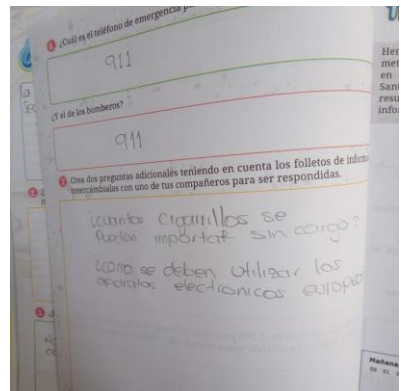 ¿Cuál es el teléfono de emergencia
911
¿Y el de los bomberos?
911
Crea dos preguntas adicionales teniendo en cuenta los folletos de
intercámbialas con uno de tus compañeros para ser respondidas.
¿cuantos cigarrillos se
pueden importar sin cargo?
¿como se deben utilizar los
aparatos electronicos europeos
en
Mañana